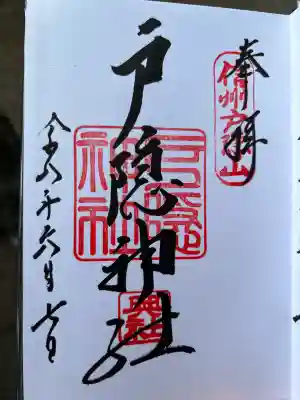 奉拝
信州戸隠山
戸隠神社
戸隠神社
奥社
令六年六月七日